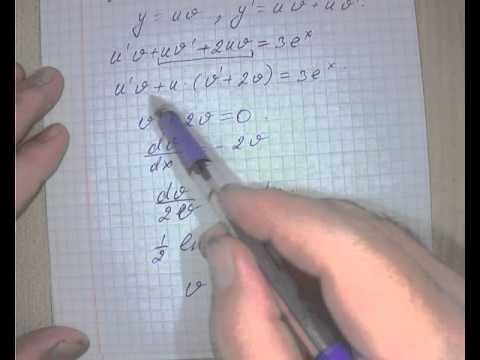 y = uv , y' = u'v + uv'.
u'v + uv' + 2uv = 3e^x
u'v + u · (v' + 2v) = 3e^x.
v 2v = 0.
dv/dx - 2v
dv/2v
1/2 ln
v